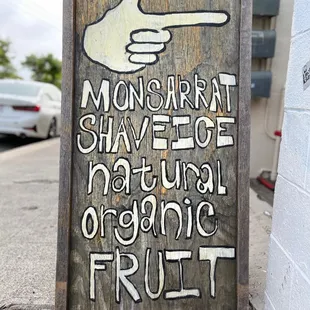 MONSARRAT
SHAVE ICE
natural
organic
FRUIT